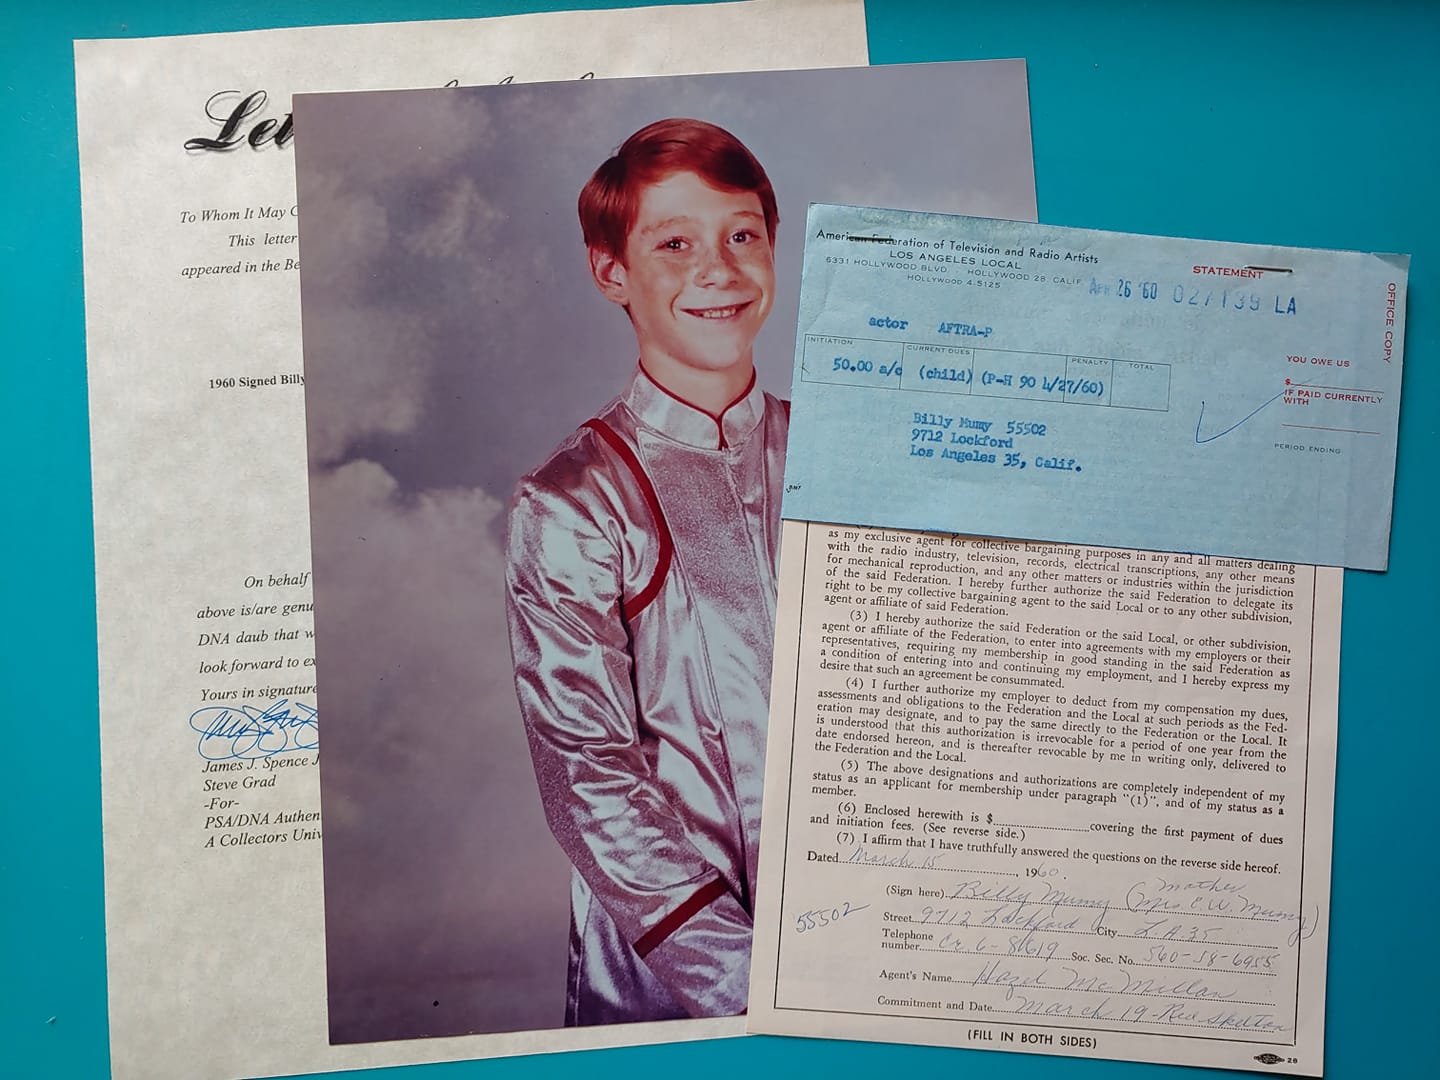 Let
To Whom It May C
This letter
appeared in the Be
1960 Signed Billy
On behalf
above is/are genu
DNA daub that w
look forward to ex
Yours in signature
James J. Spence J
Steve Grad
-For-
PSA/DNA Authen
A Collectors Univ
American Federation of Television and Radio Artists
LOS ANGELES LOCAL
6331 HOLLYWOOD BLVD. HOLLYWOOD 28, CALIF.
HOLLYWOOD 4-5125
STATEMENT
OFFICE COPY
APR 26 '60 LA
actor AFTRA-P
INITIATION CURRENT DUES PENALTY TOTAL
50.00 a/c (child) (P-H 90 4/27/60)
YOU OWE US
$
IF PAID CURRENTLY
WITH
PERIOD ENDING
Billy Mumy 55502
9712 Lockford
Los Angeles 35, Calif.
as my exclusive agent for collective bargaining purposes in any and all matters dealing
with the radio industry, television, records, electrical transcriptions, any other means
for mechanical reproduction, and any other matters or industries within the jurisdiction
of the said Federation. I hereby further authorize the said Federation to delegate its
right to be my collective bargaining agent to the said Local or to any other subdivision,
agent or affiliate of said Federation.
(3) I hereby authorize the said Federation or the said Local, or other subdivision,
agent or affiliate of the Federation, to enter into agreements with my employers or their
representatives, requiring my membership in good standing in the said Federation as
a condition of entering into and continuing my employment, and I hereby express my
desire that such an agreement be consummated.
(4) I further authorize my employer to deduct from my compensation my dues,
assessments and obligations to the Federation and the Local at such periods as the Fed-
eration may designate, and to pay the same directly to the Federation or the Local. It
is understood that this authorization is irrevocable for a period of one year from the
date endorsed hereon, and is thereafter revocable by me in writing only, delivered to
the Federation and the Local.
(5) The above designations and authorizations are completely independent of my
status as an applicant for membership under paragraph "(1)", and of my status as a
member.
(6) Enclosed herewith is $ covering the first payment of dues
and initiation fees. (See reverse side.)
(7) I affirm that I have truthfully answered the questions on the reverse side hereof.
Dated March 15, 1960.
mother
(Sign here) Billy Mumy (Mrs. C.W. Mumy)
55502
Street 9712 Lockford City L.A. 35
Telephone
number Cr. 6- Soc. Sec. No.
Agent's Name Hazel McMillan
Commitment and Date March 19 - Red Skelton
(FILL IN BOTH SIDES)
28